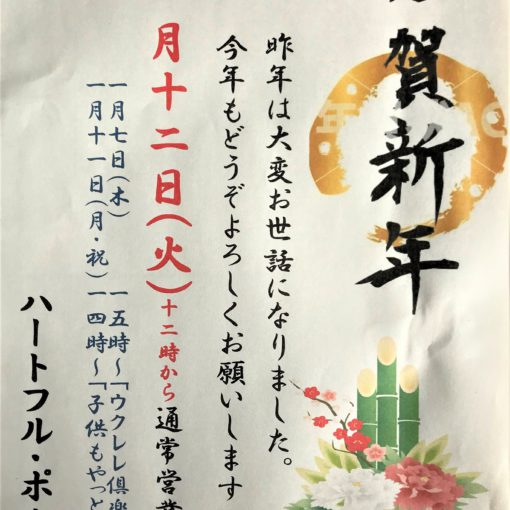 賀新年
昨年は大変お世話になりました。
今年もどうぞよろしくお願いします
月十二日(火)十二時から通常営業
一月七日(木)　一五時〜「ウクレレ倶楽
一月十一日(月・祝)一四時〜「子供もやっと
ハートフル・ポ